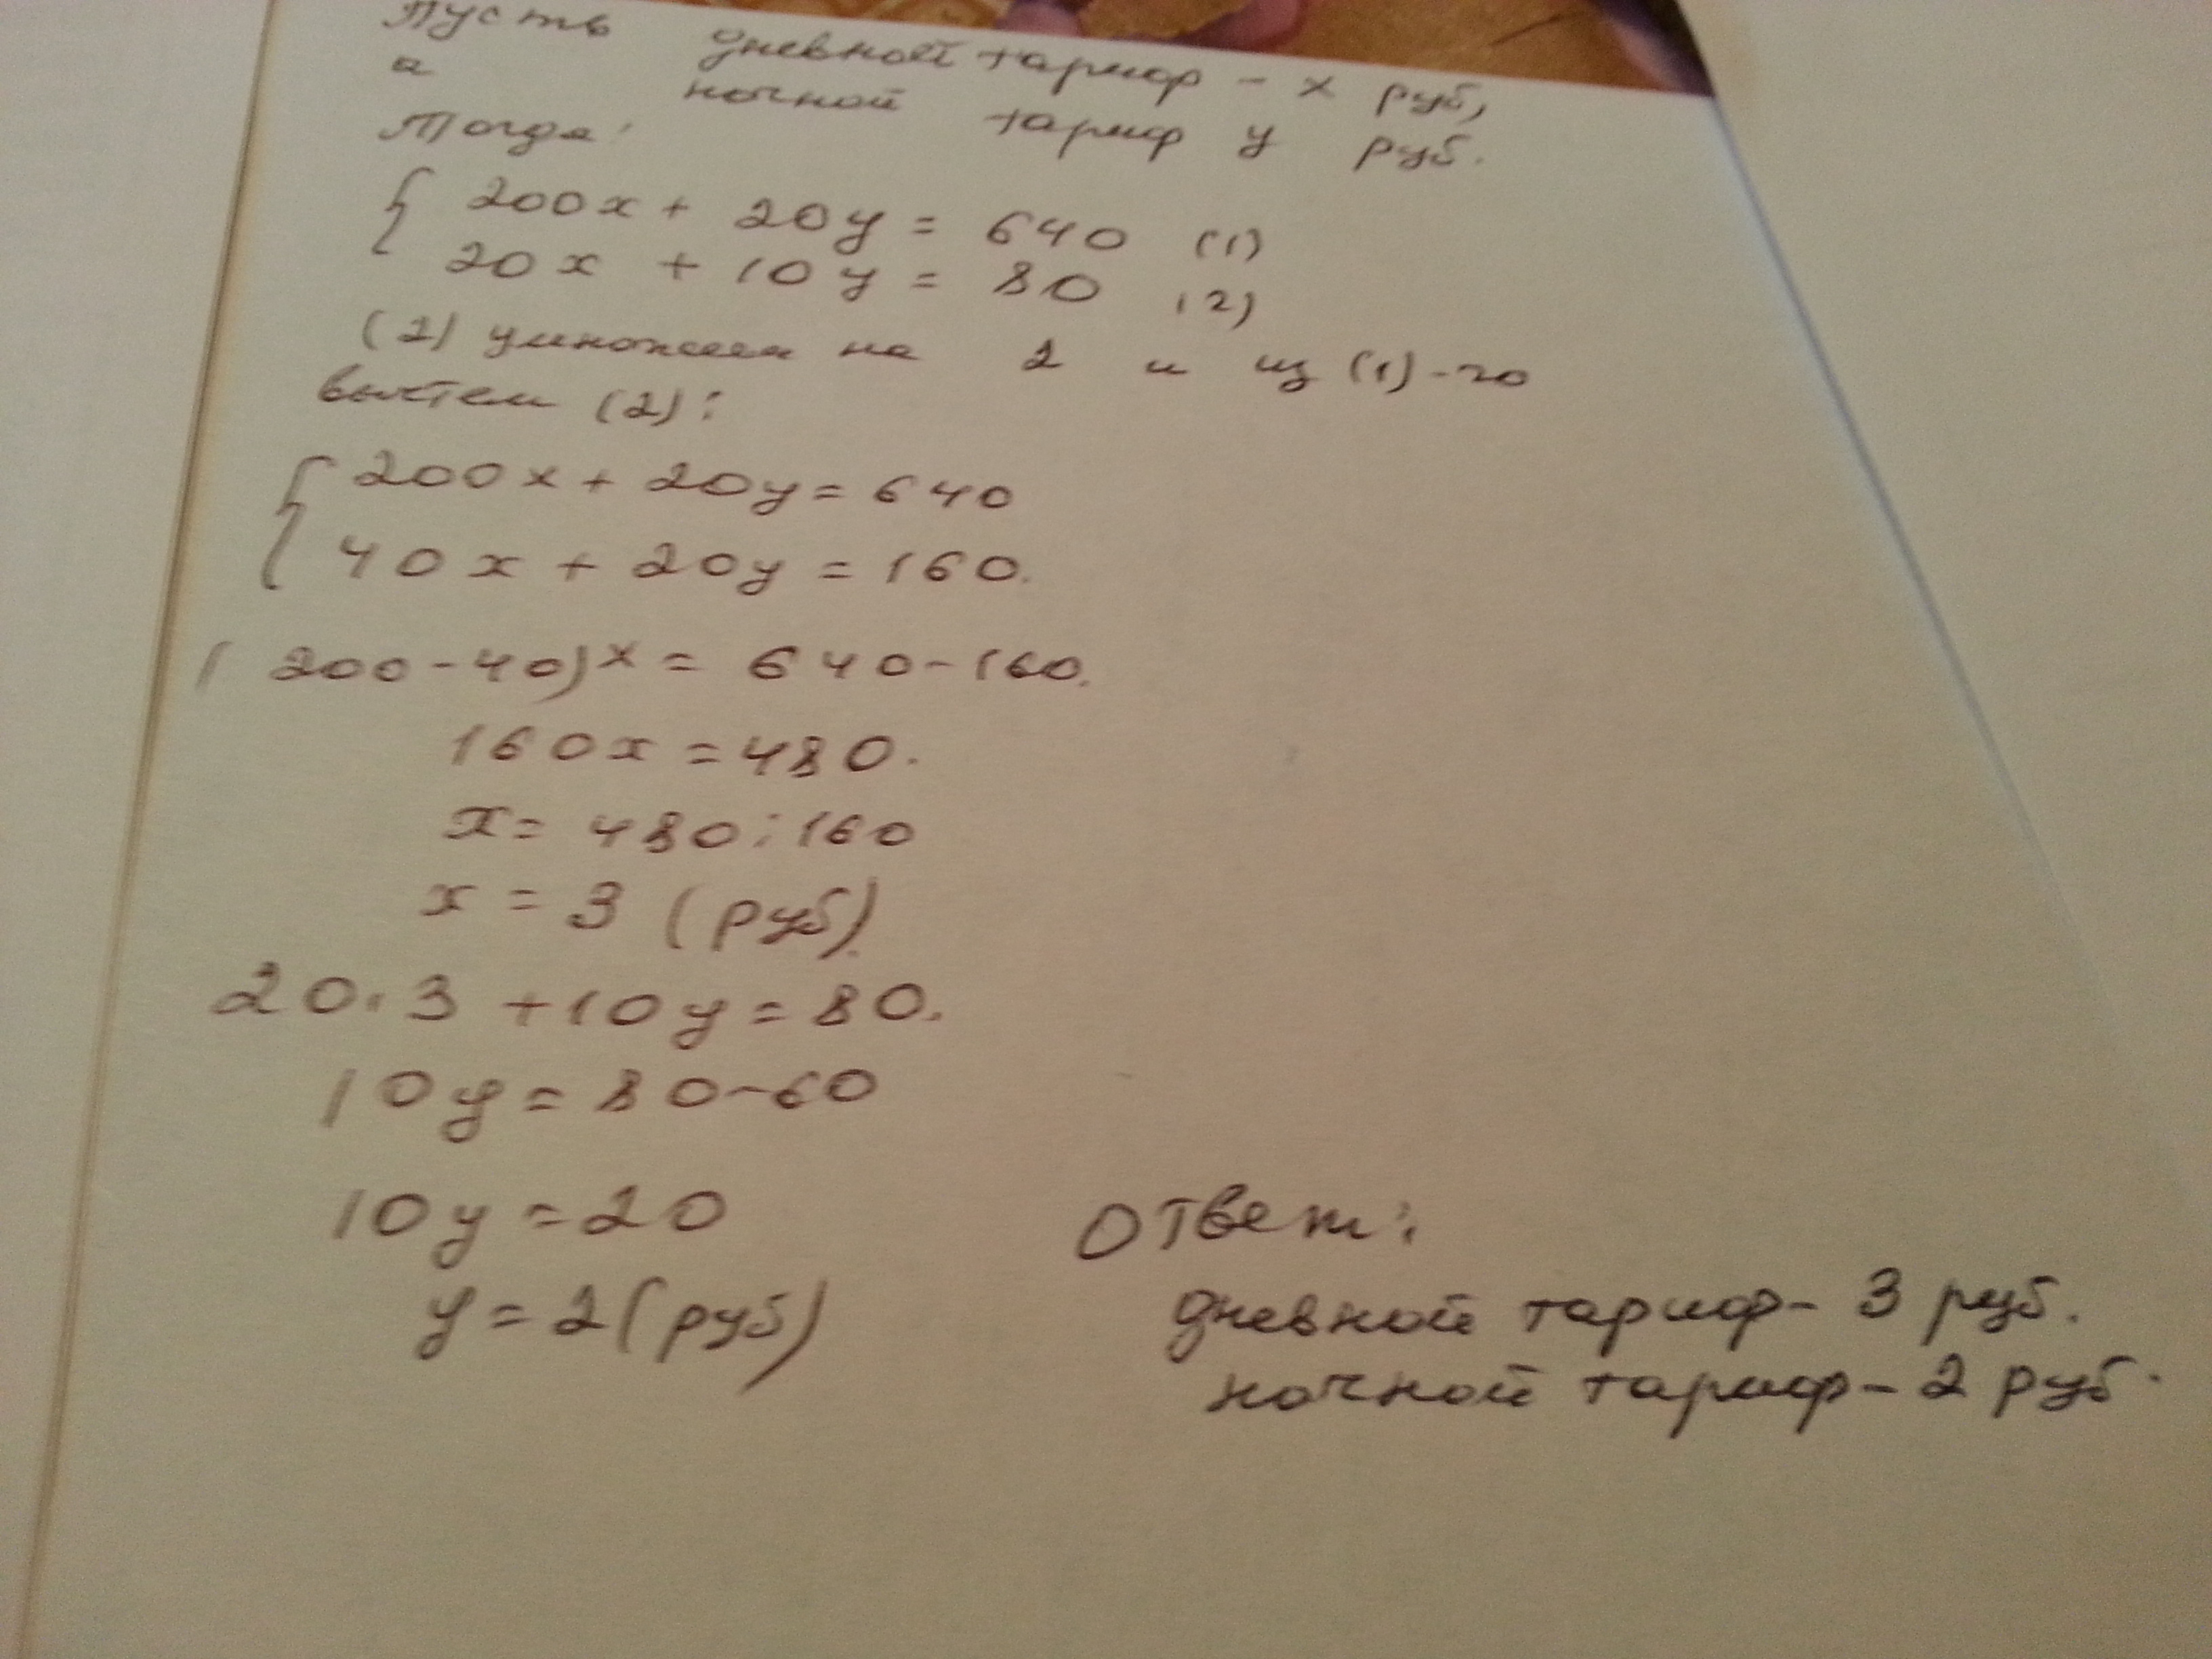 Пусть дневной тариф - x руб,
а ночной тариф y руб.
Тогда:
200x + 20y = 640 (1)
20x + 10y = 80 (2)
(2) умножаем на 2 и из (1)-го
вычтем (2):
200x + 20y = 640
40x + 20y = 160.
(200-40)x = 640-160.
160x = 480.
x = 480:160
x = 3 (руб).
20·3 + 10y = 80.
10y = 80-60
10y = 20
y = 2 (руб)
Ответ:
дневной тариф- 3 руб.
ночной тариф- 2 руб.